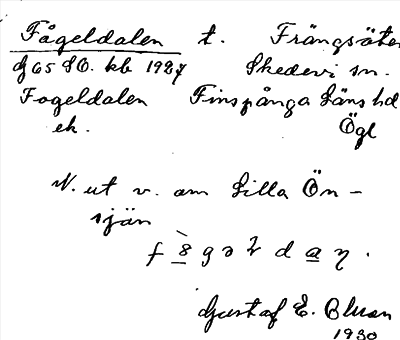 Fågeldalen t. Frängsäter
Gj 65 SO. kb 1927 Skedevi sn.
Fogeldalen Finspånga läns hd
ek. Ögl
N. ut v. om Lilla Ön-
sjön
Gustaf E. Bluan
1930